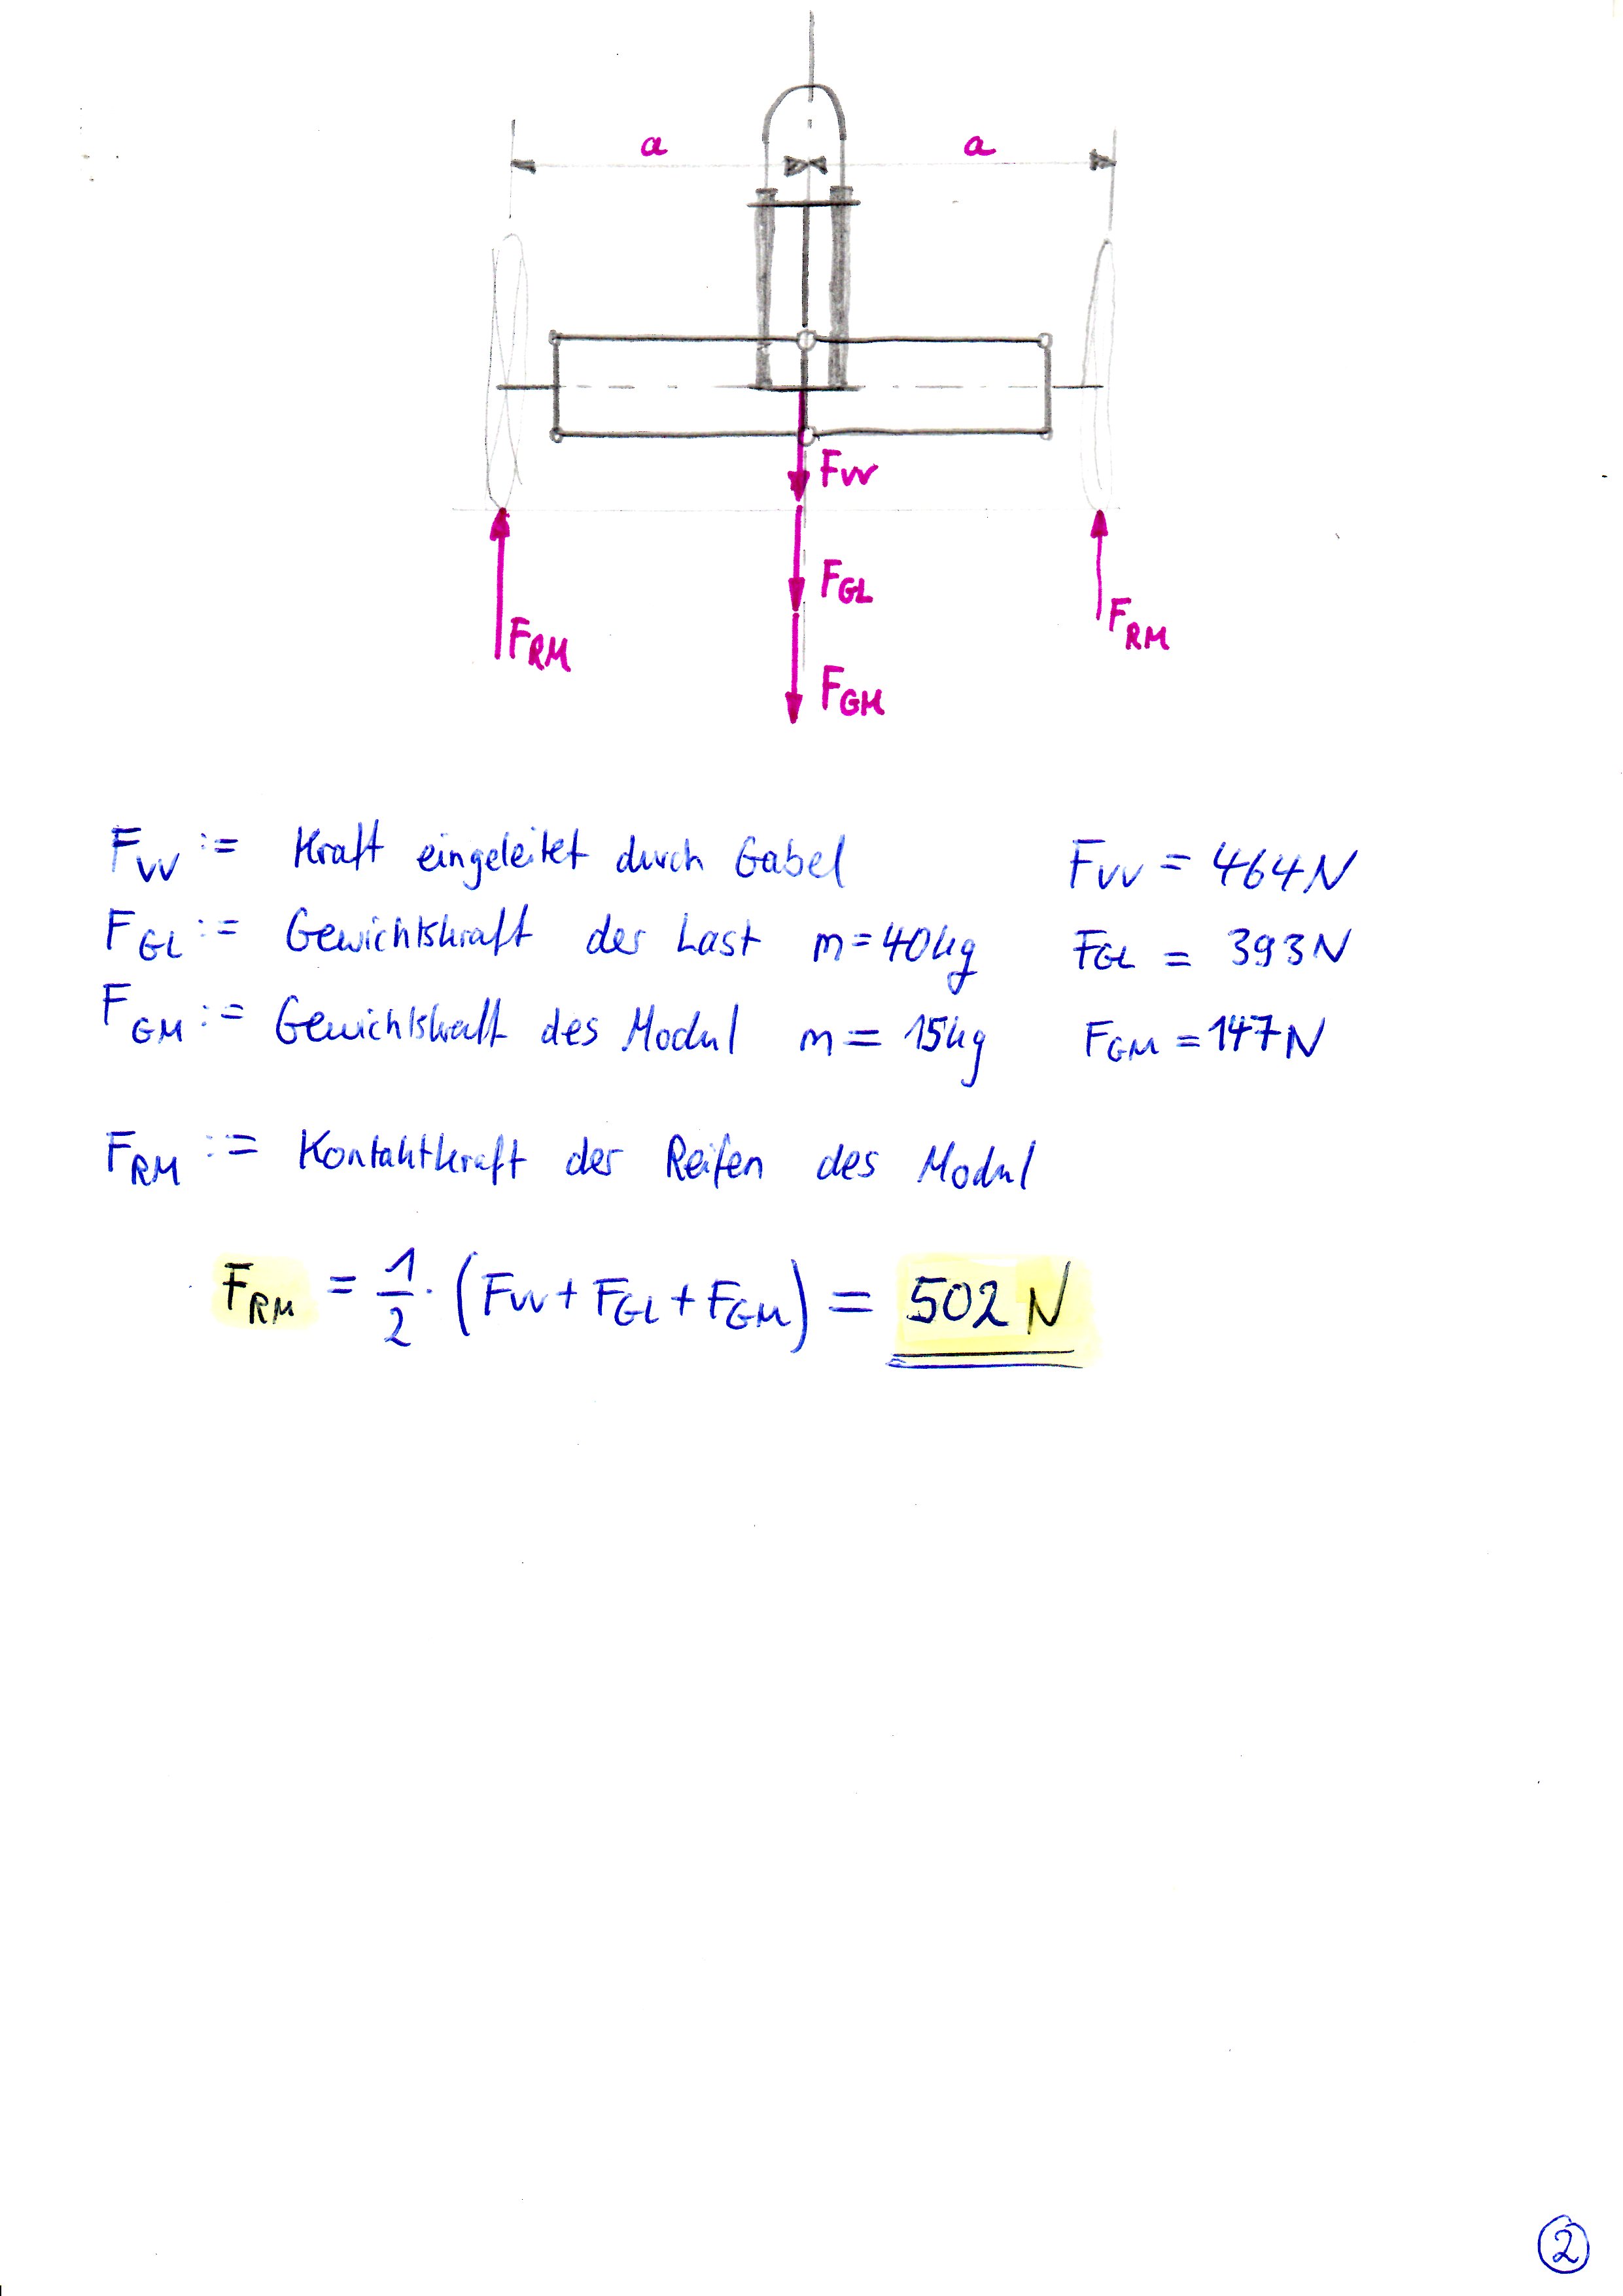 a a
F_VV
F_GL
F_RM
F_RM
F_GM
F_VV := Kraft eingeleitet durch Gabel F_VV = 464N
F_GL := Gewichtskraft der Last m=40kg F_GL = 393N
F_GM := Gewichtskraft des Modul m = 15kg F_GM = 147N
F_RM := Kontaktkraft der Reifen des Modul
F_RM = 1/2 · (F_VV + F_GL + F_GM) = 502 N
2